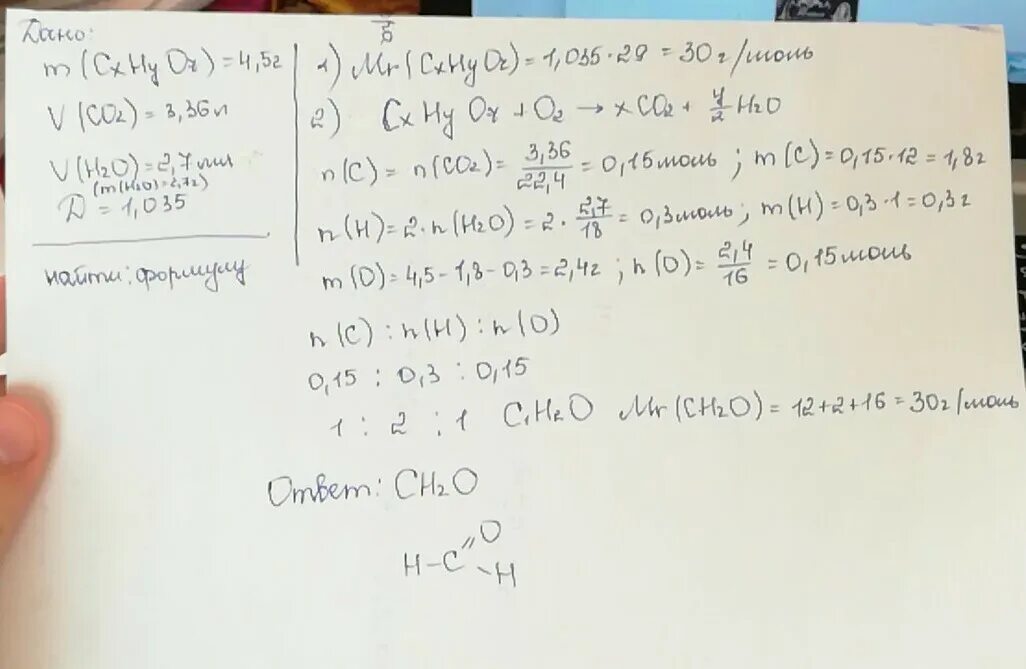 Дано:
m(CxHyOz)=4,5г
V(CO2)=3,36л
V(H2O)=2,7мл
(m(H2O)=2,7г)
D=1,035
найти: формулу
1) Mr(CxHyOz)=1,035·29=30г/моль
2) CxHyOz+O2→xCO2+y/2H2O
n(C)=n(CO2)=3,36/22,4=0,15моль; m(C)=0,15·12=1,8г
n(H)=2·n(H2O)=2·2,7/18=0,3моль; m(H)=0,3·1=0,3г
m(O)=4,5-1,8-0,3=2,4г; n(O)=2,4/16=0,15моль
n(C):n(H):n(O)
0,15:0,3:0,15
1:2:1 C1H2O Mr(CH2O)=12+2+16=30г/моль
Ответ: CH2O
O
H-C
H